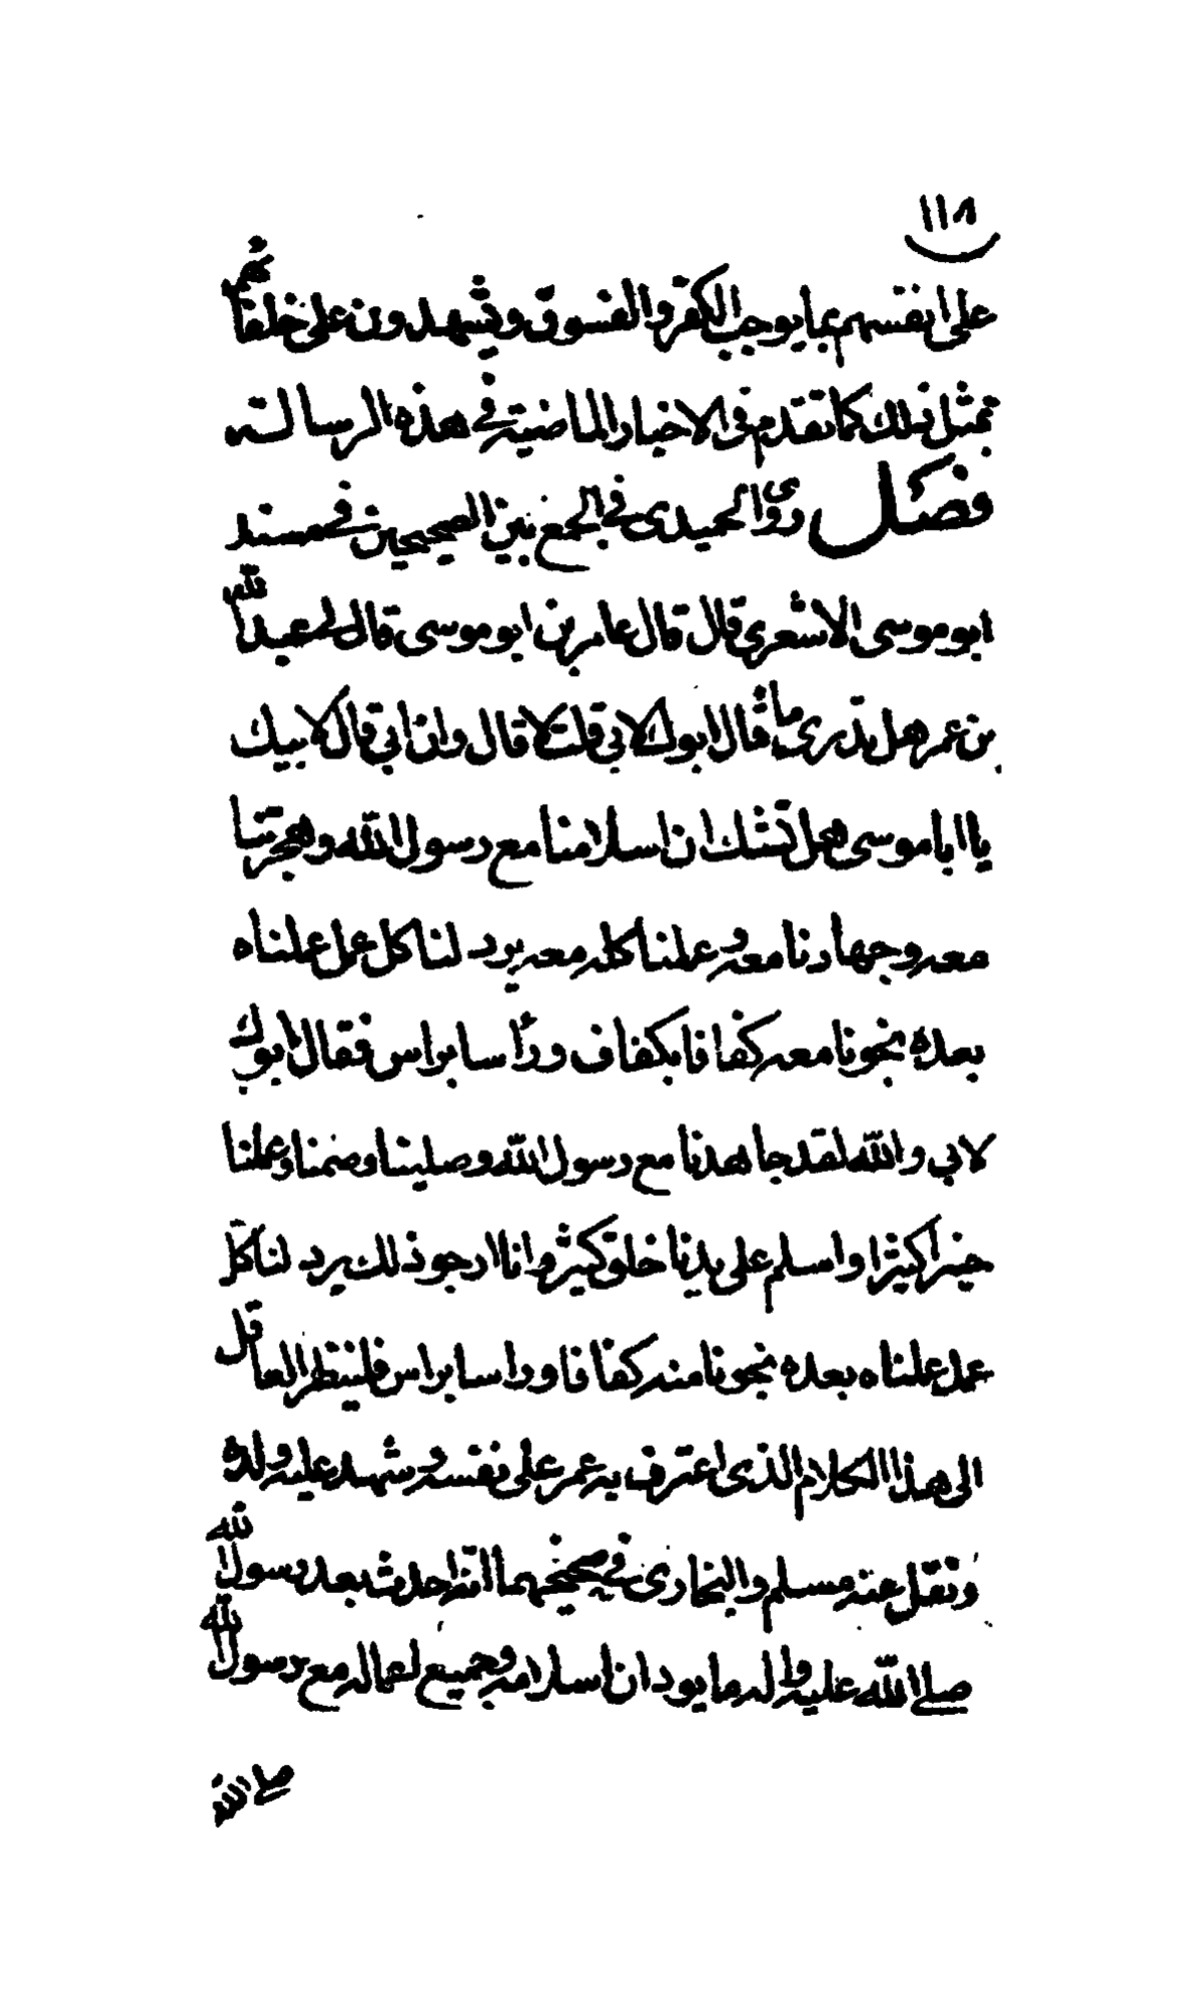 ١١٨
على انفسهم بما يوجب الكفر والفسوق ويشهدون على خلفائهم
بمثل ذلك كما تقدم فى الاخبار الماضية في هذه الرسالة
فصل روى الحميدى في الجمع بين الصحيحين في مسند
ابو موسى الاشعري قال قال عامر بن ابو موسى قال لي عبد الله
بن عمر هل تدرى ما قال ابوك لابي قلت لا قال وان ابي قال لابيك
يا ابا موسى هل تشك ان اسلامنا مع رسول الله وهجرتنا
معه وجهادنا معه وعملنا كله معه يرد لنا كل عمل عملناه
بعده نجونا معه كفافا بكفاف ورأسا براس فقال ابوك
لابي والله لقد جاهدنا مع رسول الله وصلينا وصمنا وعملنا
خيرا كثيرا واسلم على يدنا خلق كثير وانا ارجو ذلك يرد لنا كل
عمل عملناه بعده نجونا منه كفافا وراسا براس فلينظر العاقل
الى هذا الكلام الذى اعترف به عمر على نفسه وشهد عليه ولده
ونقل عنه مسلم والبخارى في صحيحهما انه احدث بعد رسول الله
صلى الله عليه واله ما يود ان اسلامه وجميع اعماله مع رسول الله
صلى الله